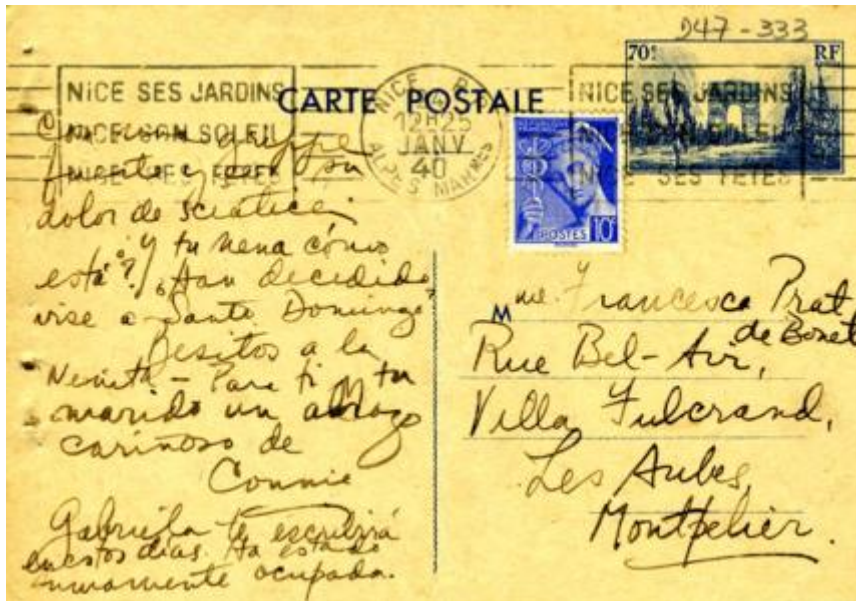 D47-333
70f RF
NICE SES JARDINS
NICE SON SOLEIL
NICE SES FETES
CARTE POSTALE
NICE R.P.
12H25
JANV
40
ALPES MARMES
NICE SES JARDINS
NICE SON SOLEIL
NICE SES FETES
POSTES 10c
con una grippe
fuerte y con su
dolor de sciatica.
¿Y tu nena cómo
está? ¿Han decidido
irse a Santo Domingo?
Besitos a la
Nenita - Para ti y tu
marido un abrazo
cariñoso de
Connie
Gabriela te escribirá
en estos días. Ha estado
sumamente ocupada.
Mme. Francesca Prat
de Bonet
Rue Bel-Air,
Villa Fulcrand,
Les Aubes,
Montpelier.